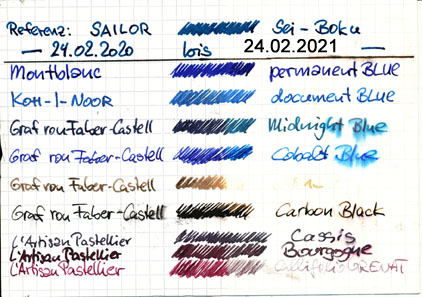 Referenz: SAILOR Sei-Boku
— 24.02.2020 bis 24.02.2021 —
Montblanc permanent BLUE
KOH-I-NOOR document BLUE
Graf von Faber-Castell Midnight Blue
Graf von Faber-Castell Cobalt Blue
Graf von Faber-Castell
Graf von Faber-Castell Carbon Black
L'Artisan Pastellier Cassis
L'Artisan Pastellier Bourgogne
L'Artisan Pastellier GRENAT